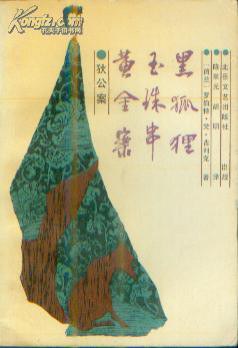 孔夫子旧书网
北岳文艺出版社 出版
陈来元 胡明 译
〔荷兰〕罗伯特·梵·古利克 著
黑狐狸
玉珠串
黄金案
●狄公案